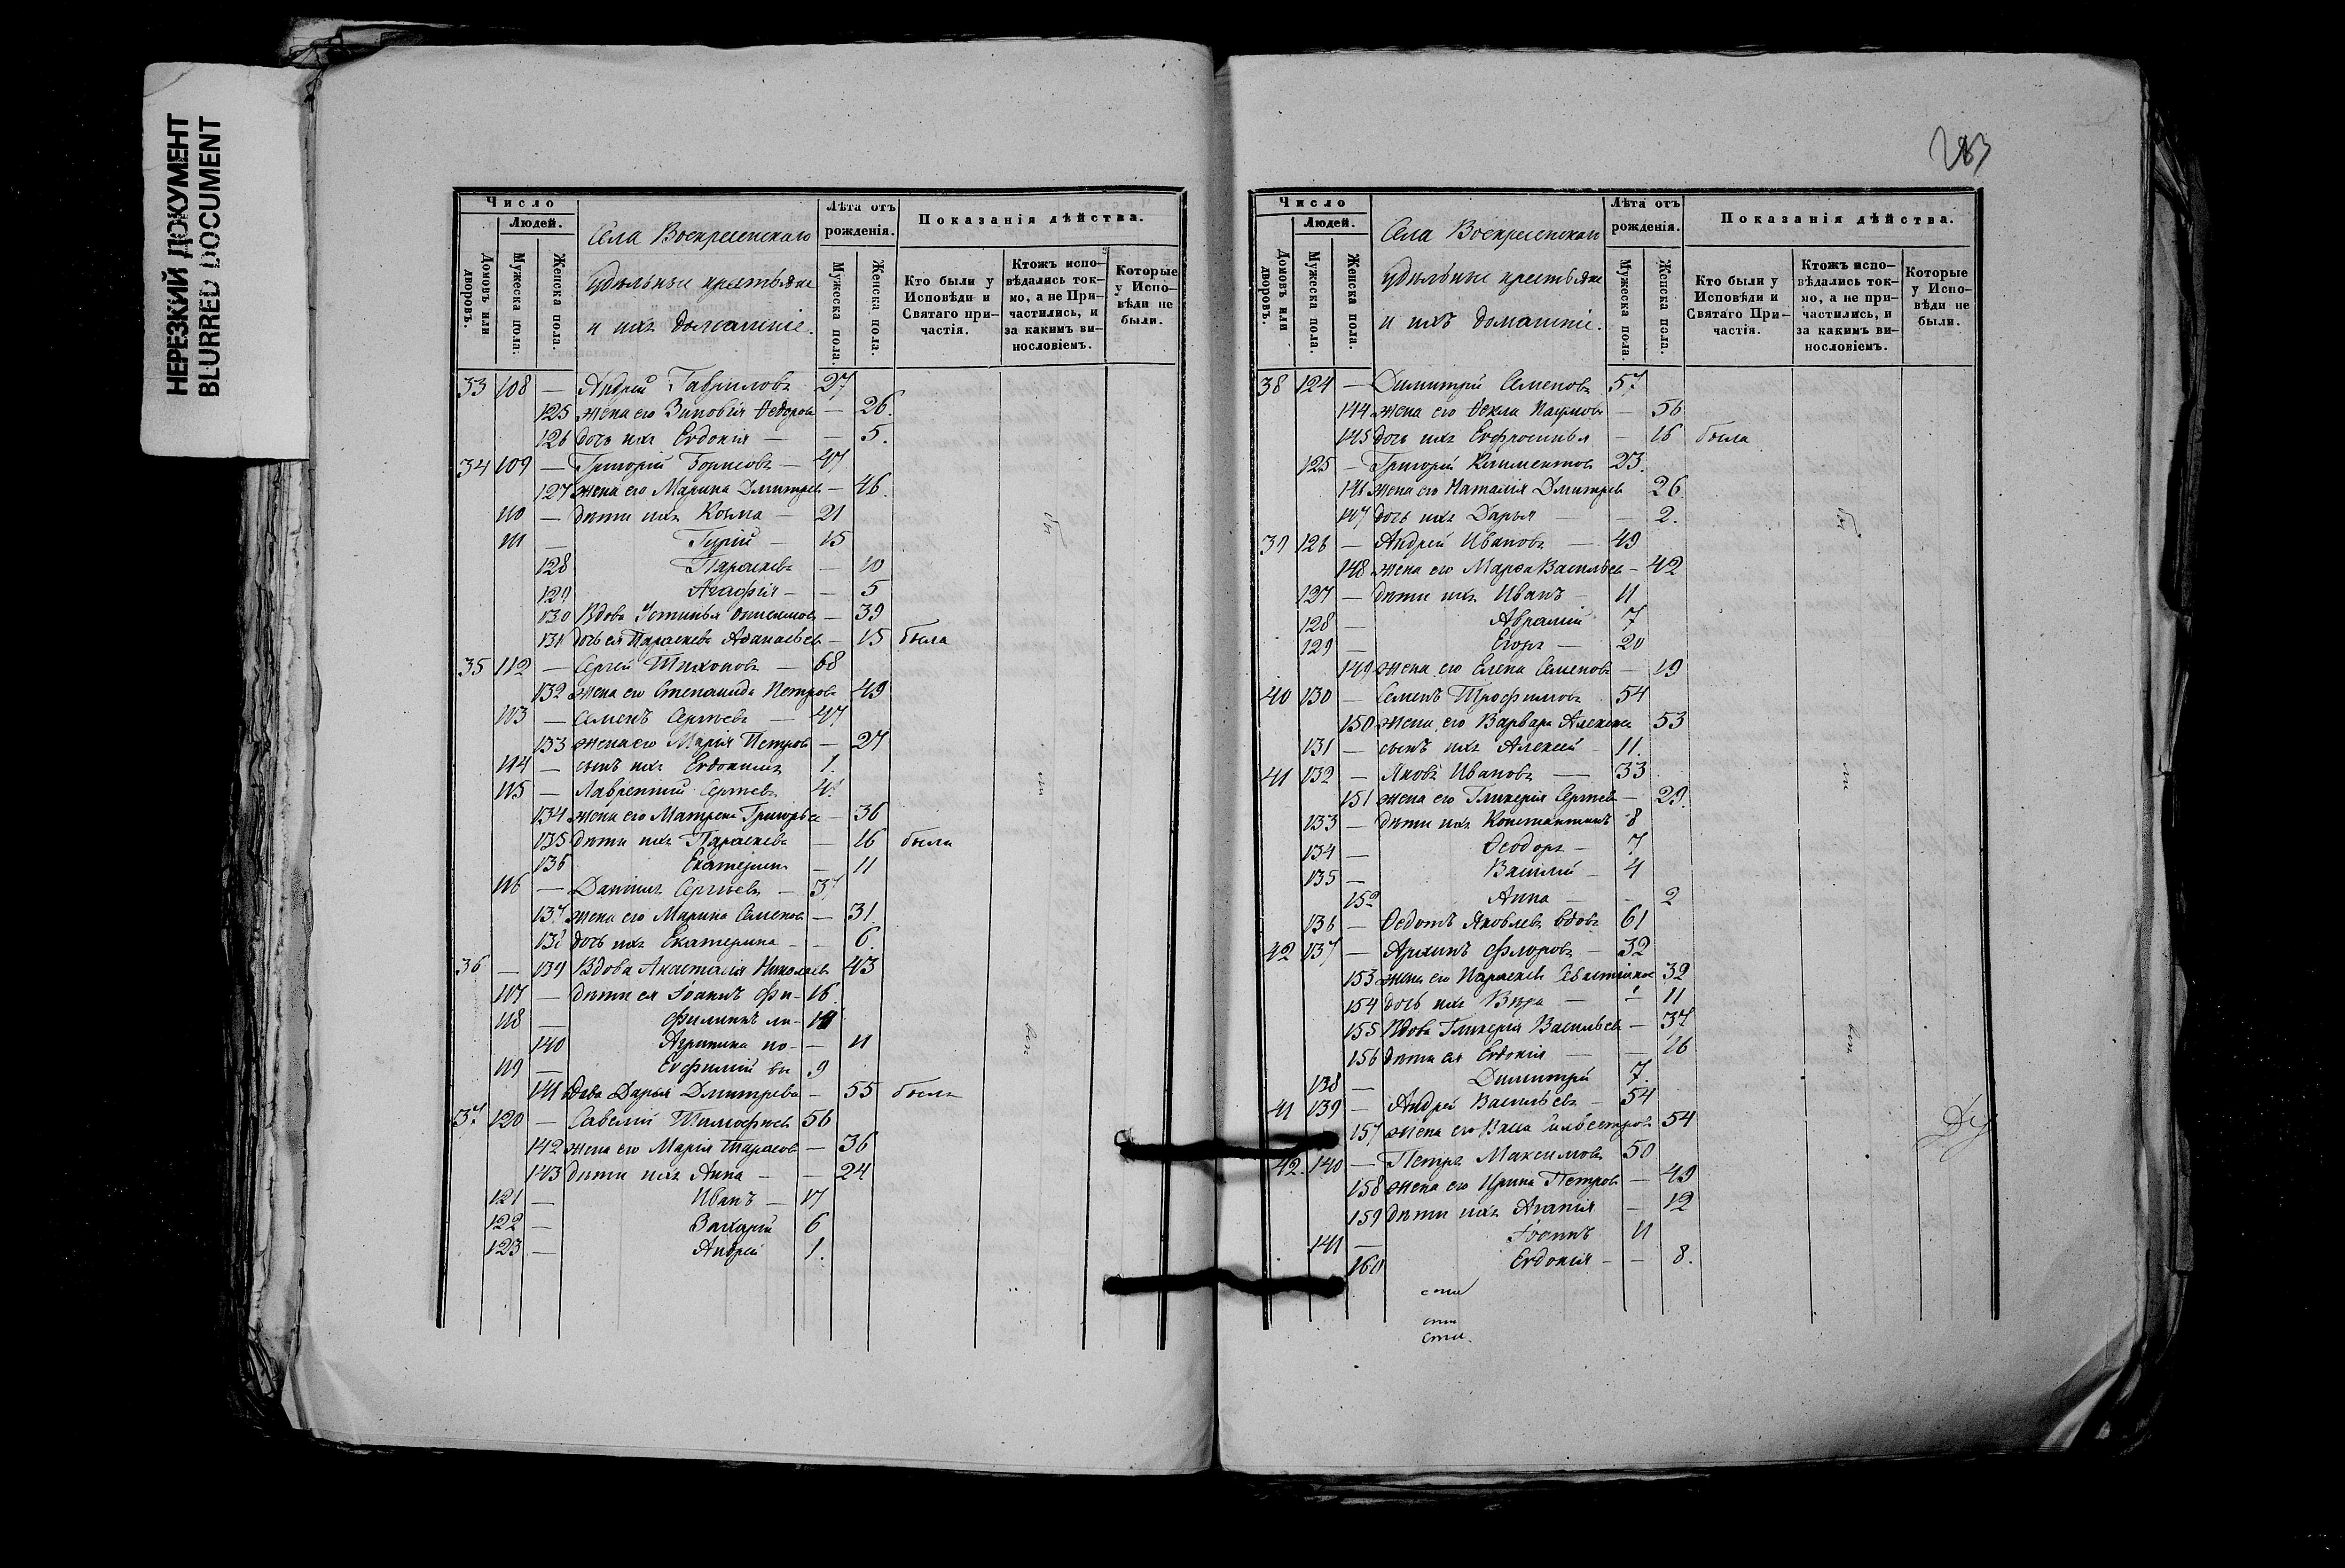 НЕРЕЗКИЙ ДОКУМЕНТ
BLURRED DOCUMENT
Число
Людей.
Домовъ или дворовъ.
Мужеска пола.
Женска пола.
Села Воскресенскаго
удѣльные крестьяне
и ихъ домашніе.
Лѣта отъ
рожденія.
Мужеска пола
Женска пола.
Показанія дѣйства.
Кто были у
Исповѣди и
Святаго при-
частія.
Ктожъ испо-
вѣдались ток-
мо, а не При-
частились, и
за какимъ ви-
нословіемъ.
Которые
у Испо-
вѣди не
были.
33 108 — Андрей Гавриловъ 27
125 жена его Зиновія Ѳедоров — 26.
126 дочь ихъ Евдокія — — 5.
34 109 — Григорій Борисовъ — 47
127 жена его Марина Дмитрев — 46.
110 — дѣти ихъ Козма — 21
111 — Гурій — 15
128 Параскев — 10
129 Агафія — — 5
130 Вдова Устинья Онисимов — 39
131 дочь ея Параскева Аѳанасьев — 15 была
35 112 — Сергей Тихоновъ — 68
132 жена его Степанида Петров 49
113 — Семенъ Сергѣевъ — 47
133 жена его Марія Петров — 27
114 — сынъ ихъ Евдокимъ 1.
115 — Лаврентий Сергѣевъ
134 жена его Матрена Григорье — 36
135 дѣти ихъ Параскева — 16 была
136 Екатерин — 11
116 — Даніилъ Сергѣевъ — 37
137 жена его Марина Семенов — 31.
138 дочь ихъ Екатерина — — 6.
36 — 139 Вдова Анастасія Николаев 43
117 — дѣти ея Іоаннъ фи- 16.
118 — Филиппъ ли-
140 Агрипина по- — 11
119 — Евфимій вы 9
141 вдова Дарья Дмитрева — 55 была
37 120 — Савелій Тимофѣев 56
142 жена его Марія Тарасов — 36
143 дѣти ихъ Анна — — 24
121 — Иванъ — 17
122 — Захарій 6
123 — Андрей 1.
бы
ли
всѣ
283
Число
Людей.
Домовъ или дворовъ.
Мужеска пола.
Женска пола.
Села Воскресенскаго
удѣльные крестьяне
и ихъ домашніе.
Лѣта отъ
рожденія.
Мужеска пола.
Женска пола.
Показанія дѣйства.
Кто были у
Исповѣди и
Святаго При-
частія.
Ктожъ испо-
вѣдались ток-
мо, а не при-
частились, и
за какимъ ви-
нословіемъ.
Которые
у Испо-
вѣди не
были.
38 124 — Димитрій Семеновъ 57
144 жена его Ѳекла Наумов — 56
145 дочь ихъ Евфросинья — 16 была
125 — Григорій Климентов 23.
146 жена его Наталія Дмитрев 26
147 дочь ихъ Дарья — — 2.
39 126 — Андрей Ивановъ — 49
148 жена его Марѳа Васильев — 42
127 — дѣти ихъ Иванъ — 11
128 — Аврамій 7
129 — Егоръ — 20
149 жена его Елена Семенов — 19
40 130 — Семенъ Трофимовъ 54
150 жена его Варвара Алексѣев 53
131 — сынъ ихъ Алексѣй — 11.
41 132 — Яковъ Ивановъ — 33
151 жена его Гликерія Сергѣев — 29.
133 — дѣти ихъ Константинъ 8
134 — Ѳеодоръ — 7
135 — Василій — 4
152 Анна — — 2
136 — Ѳедотъ Яковлевъ вдовъ 61
42 137 — Архипъ Флоровъ — 32
153 жена его Параскев Севастіянов 32
154 дочь ихъ Вѣра — — 11
155 Вдова Гликерія Васильев — 37
156 дѣти ея Евдокія — — 16
138 — Димитрій 7.
41 139 — Андрей Васильевъ — 54
157 жена его Васса Сильвестров 54
42. 140 — Петръ Максимовъ 50
158 жена его Ирина Петров — 49
159 дѣти ихъ Агапія — 12
141 — Іоаннъ 11
160 Евдокія — — 8.
бы
ли
всѣ